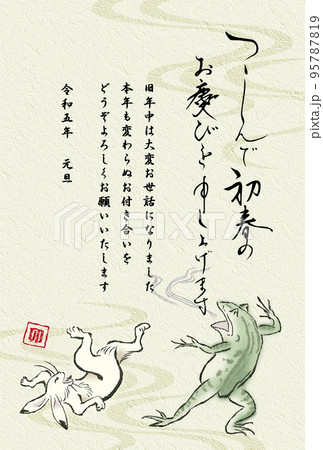 つゝしんで初春の
お慶びを申し上げます
旧年中は大変お世話になりました
本年も変わらぬお付き合いを
どうぞよろしくお願いいたします
令和五年 元旦
卯
PIXTA
pixta.jp - 95787819